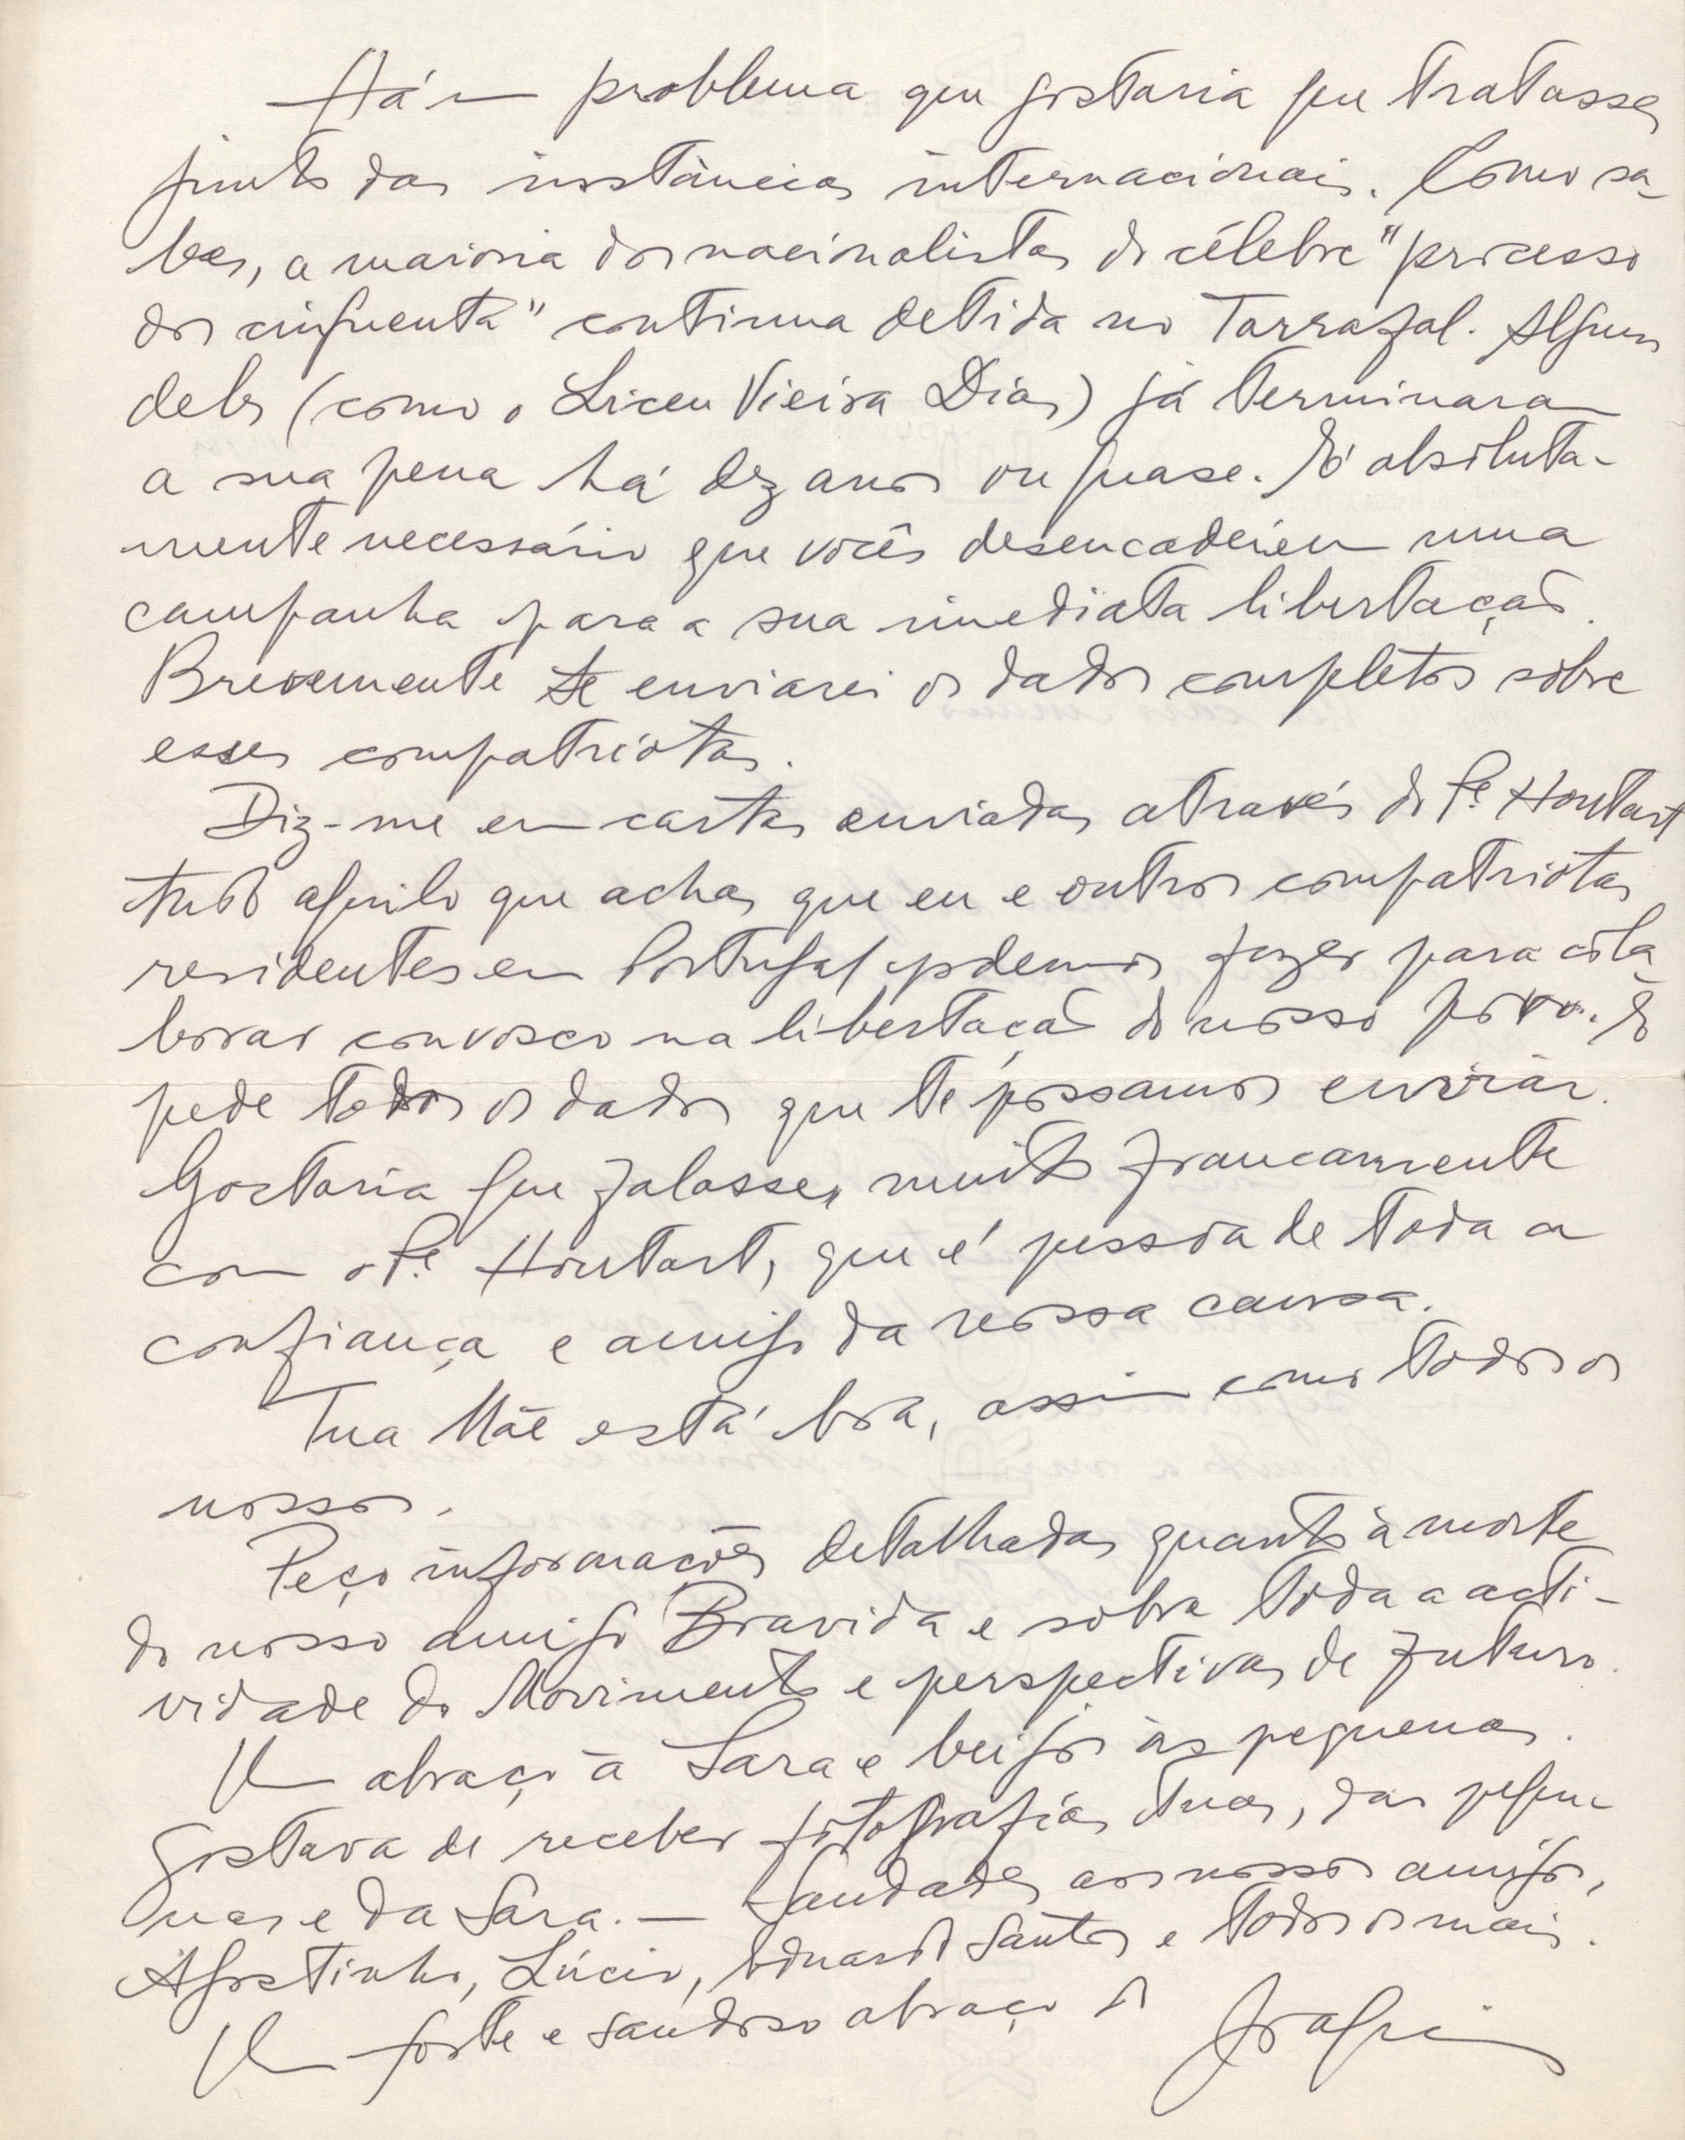 Há um problema que gostaria que tratasses
junto das instâncias internacionais. Como sa-
bes, a maioria dos nacionalistas do célebre "processo
dos cinquenta" continua detida no Tarrafal. Alguns
deles (como o Liceu Vieira Dias) já terminaram
a sua pena há dez anos ou quase. É absoluta-
mente necessário que vocês desencadeiem uma
campanha para a sua imediata libertação.
Brevemente te enviarei os dados completos sôbre
esses compatriotas.
Diz-me em cartas enviadas através do Pe. Houtart
tudo aquilo que achas que eu e outros compatriotas
residentes em Portugal podemos fazer para cola-
borar convosco na libertação do nosso povo. E
pede todos os dados que te possamos enviar.
Gostaria que falasses muito francamente
com o Pe. Houtart, que é pessoa de toda a
confiança e amigo da nossa causa.
Tua Mãe está boa, assim como todos os
nossos.
Peço informações detalhadas quanto à morte
do nosso amigo Bravida e sobre toda a acti-
vidade do Movimento e perspectivas de futuro.
Um abraço à Sara e beijos às pequenas.
Gostava de receber fotografias tuas, das peque-
nas e da Sara. — Saudades aos nossos amigos,
Agostinho, Lúcio, Eduardo Santos e todos os mais.
Um forte e saudoso abraço do